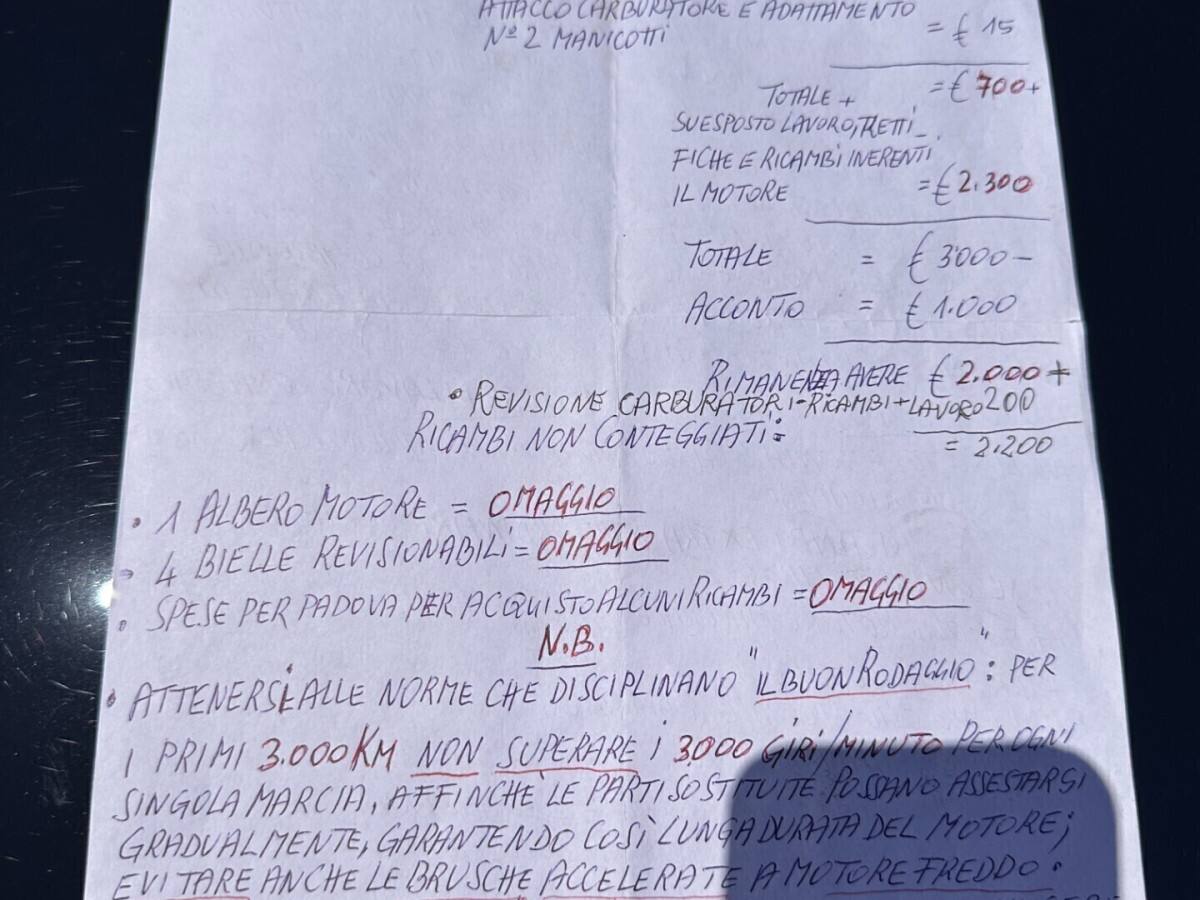 ATTACCO CARBURATORE E ADATTAMENTO
Nº 2 MANICOTTI = € 15
TOTALE + = € 700+
SUESPOSTO LAVORO, RETTI-
FICHE E RICAMBI INERENTI
IL MOTORE = € 2.300
TOTALE = € 3000 -
ACCONTO = € 1.000
RIMANENZA AVERE € 2.000 +
• REVISIONE CARBURATORI - RICAMBI + LAVORO 200
RICAMBI NON CONTEGGIATI: = 2.200
• 1 ALBERO MOTORE = OMAGGIO
• 4 BIELLE REVISIONABILI = OMAGGIO
• SPESE PER PADOVA PER ACQUISTO ALCUNI RICAMBI = OMAGGIO
N.B.
• ATTENERSI ALLE NORME CHE DISCIPLINANO "IL BUON RODAGGIO": PER
I PRIMI 3.000 KM NON SUPERARE I 3000 GIRI/MINUTO PER OGNI
SINGOLA MARCIA, AFFINCHÈ LE PARTI SOSTITUITE POSSANO ASSESTARSI
GRADUALMENTE, GARANTENDO COSÌ LUNGA DURATA DEL MOTORE;
EVITARE ANCHE LE BRUSCHE ACCELERATE A MOTORE FREDDO.